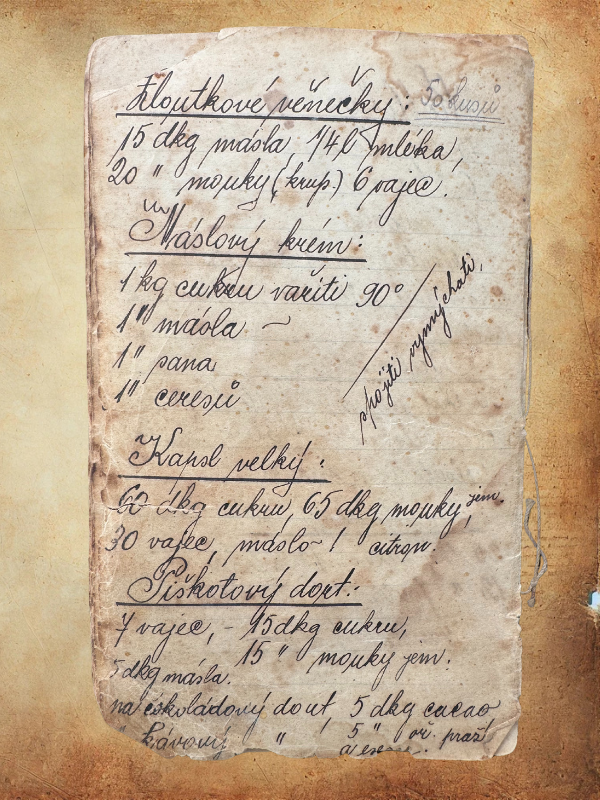 Žloutkové věnečky: 50 kusů
15 dkg másla, 1/4 l mléka,
20 " mouky (krup.) 6 vajec.
Máslový krém:
1 kg cukru vařiti 90°
1 " másla ~
1 " sana
1 " ceresů
spojiti vymýchati.
Kapsl velký:
60 dkg cukru, 65 dkg mouky, jem.
30 vajec, máslo ~ 1 citron.
Piškotový dort:
7 vajec, - 15 dkg cukru,
15 " mouky jem.
5 dkg másla.
na čokoládový dort, 5 dkg cacao
kávový " 5 " oř. praž.